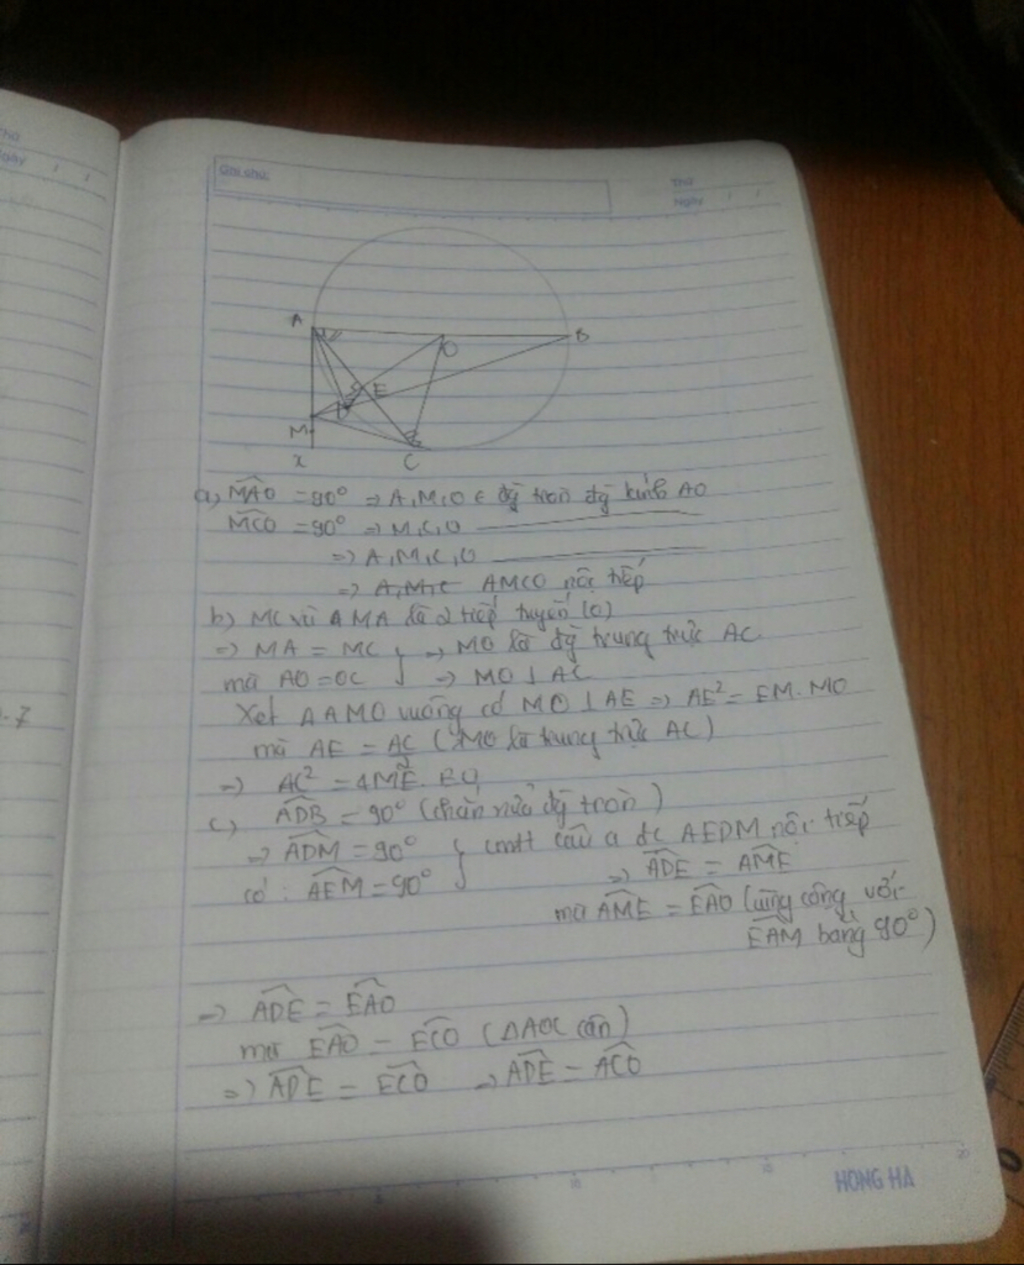 Thứ
Ngày
Ghi chú:
Thứ
Ngày
A
O
B
E
D
M
x
C
a) MAO = 90° => A,M,O ∈ đg tròn đg kính AO
MCO = 90° => M,C,O
=> A,M,C,O
=> A,M,C AMCO nội tiếp
b) MC và MA là 2 tiếp tuyến (O)
=> MA = MC } => MO là đg trung trực AC
mà AO = OC => MO ⊥ AC
Xét ΔAMO vuông có MO ⊥ AE => AE² = EM.MO
mà AE = AC/2 (MO là trung trực AC)
=> AC² = 4ME.EO
c) ADB = 90° (chắn nửa đg tròn)
=> ADM = 90° } cmtt câu a đc AEDM nội tiếp
có: AEM = 90° => ADE = AME
mà AME = EAO (cùng cộng với
EAM bằng 90°)
=> ADE = EAO
mà EAO = ECO (ΔAOC cân)
=> ADE = ECO => ADE = ACO
HONG HA
5
10
15
20